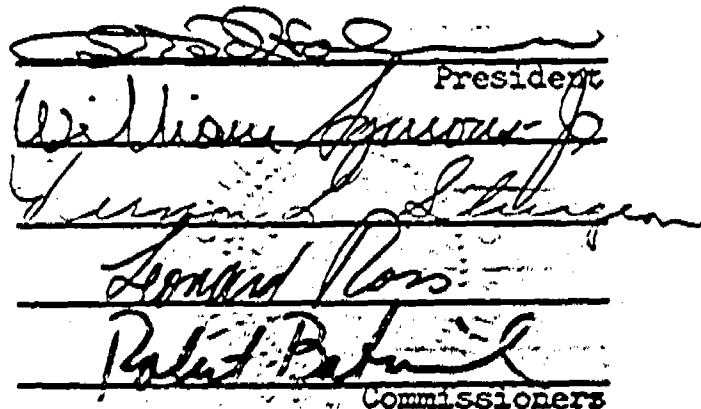 President
William Symons Jr
Vernon L Sturgeon
Leonard Ross
Robert Batinovich
Commissioners